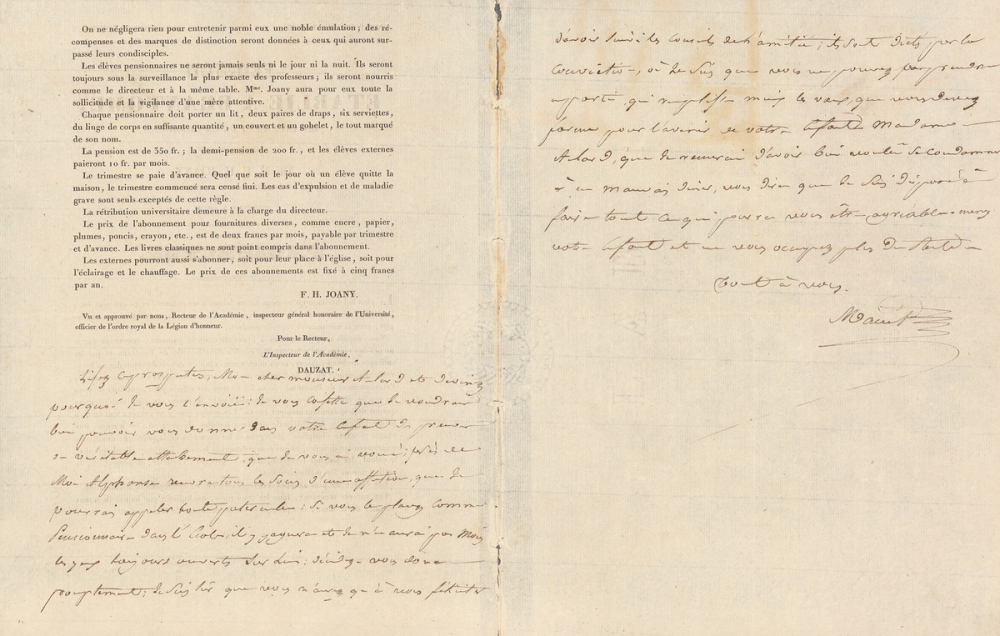 On ne négligera rien pour entretenir parmi eux une noble émulation ; des ré-
compenses et des marques de distinction seront données à ceux qui auront sur-
passé leurs condisciples.
Les élèves pensionnaires ne seront jamais seuls ni le jour ni la nuit. Ils seront
toujours sous la surveillance la plus exacte des professeurs ; ils seront nourris
comme le directeur et à la même table. Mme. Joany aura pour eux toute la
sollicitude et la vigilance d'une mère attentive.
Chaque pensionnaire doit porter un lit, deux paires de draps, six serviettes,
du linge de corps en suffisante quantité, un couvert et un gobelet, le tout marqué
de son nom.
La pension est de 350 fr. ; la demi-pension de 200 fr., et les élèves externes
paieront 10 fr. par mois.
Le trimestre se paie d'avance. Quel que soit le jour où un élève quitte la
maison, le trimestre commencé sera censé fini. Les cas d'expulsion et de maladie
grave sont seuls exceptés de cette règle.
La rétribution universitaire demeure à la charge du directeur.
Le prix de l'abonnement pour fournitures diverses, comme encre, papier,
plumes, poncis, crayon, etc., est de deux francs par mois, payable par trimestre
et d'avance. Les livres classiques ne sont point compris dans l'abonnement.
Les externes pourront aussi s'abonner, soit pour leur place à l'église, soit pour
l'éclairage et le chauffage. Le prix de ces abonnements est fixé à cinq francs
par an.
F. H. JOANY.
Vu et approuvé par nous, Recteur de l'Académie, inspecteur général honoraire de l'Université,
officier de l'ordre royal de la Légion d'honneur.
Pour le Recteur,
L'Inspecteur de l'Académie,
DAUZAT.
Lisez ce prospectus, Mon cher monsieur Alard et devinez
pourquoi je vous l'envoie : je vous que je voudrais
bien pouvoir vous donner dans votre enfant
véritable attachement, que je vous ai
Moi Alphonse tous les soins d'une affection, que je
pourrai appeler toute paternelle : si vous le placez comme
Pensionnaire dans l' il y et je n'aurai pas Moi
les yeux toujours ouverts sur lui : vous donc
promptement : je suis sûr que vous n'aurez qu'à vous féliciter
d'avoir suivi les conseils de l'amitié ; ils sont dictés par la
conviction, où je suis que vous ne pouvez pas prendre
qui mieux les vœux que vous devez
former pour l'avenir de votre enfant. Madame
Alard, que je d'avoir bien voulu se condamner
à un mauvais dîner, vous dira que je suis disposé à
faire tout ce qui pourra vous être agréable envers
votre enfant et ne vous occupez plus de
Tout à vous.